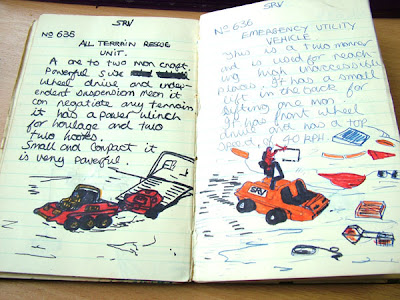 SRV
No 635
ALL TERRAIN RESCUE
UNIT.
A one to two man craft.
Powerful six
wheel drive and indep-
endent suspension mean it
can negotiate any terrain
it has a power winch
for haulage and two
two hooks.
Small and compact it
is very powerful.
SRV
No 636
EMERGENCY UTILITY
VEHICLE
This is a two manner
and is used for reach-
ing high inaccessible
places. It has a small
lift in the back for
lifting one man
It has front wheel
drive and has a top
speed of 90 KPH.
SRV